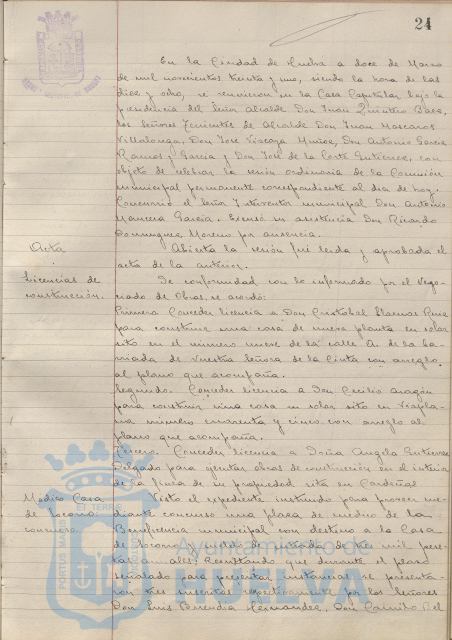 24
En la Ciudad de Huelva a doce de Marzo
de mil novecientos treinta y uno, siendo la hora de las
diez y ocho, se reunieron en la Casa Capitular bajo la
presidencia del Señor Alcalde Don Juan Quintero Báez,
los Señores Tenientes de Alcalde Don Juan Mascarós
Villalonga, Don José Vizcaya Muñoz, Don Antonio García
Ramos y García y Don José de la Corte Gutiérrez, con
objeto de celebrar la sesión ordinaria de la Comisión
municipal permanente correspondiente al día de hoy.
Concurrió el Señor Interventor municipal Don Antonio
García. Excusó su asistencia Don Ricardo
Domínguez Moreno por ausencia.
Acta
Abierta la sesión fué leída y aprobada el
acta de la anterior.
Licencias de
construcción.
De conformidad con lo informado por el Nego-
ciado de Obras, se acordó:
Primero. Conceder licencia a Don Cristóbal Llamas
para construir una casa de nueva planta en solar
sito en el número nueve de la calle A. de la ba-
rriada de Nuestra Señora de la Cinta con arreglo
al plano que acompaña.
Segundo. Conceder licencia a Don Cecilio Aragón
para construir una casa en solar sito en
número cuarenta y cinco con arreglo al
plano que acompaña.
Tercero. Conceder licencia a Doña Angela Gutiérrez
Delgado para ejecutar obras de construcción en el interior
de la finca de su propiedad sita en Cardenal
Médico Casa
de Socorro
concurso.
Visto el expediente instruido para proveer me-
diante concurso una plaza de médico de la
Beneficencia municipal con destino a la Casa
de Socorro y dotada de tres mil pese-
tas anuales; Resultando que durante el plazo
señalado para presentar instancias se presenta-
ron tres suscritas respectivamente por los Señores
Don Luis Buendía Hernández, Don Camilo Bel
Ayuntamiento de
HUELVA
PORTUS MARIS ET TERRAE CUSTODIA